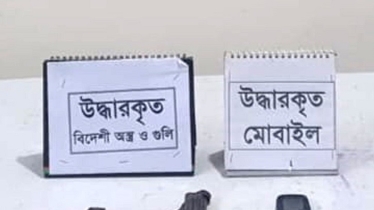 উদ্ধারকৃত
বিদেশী অস্ত্র ও গুলি
উদ্ধারকৃত
মোবাইল